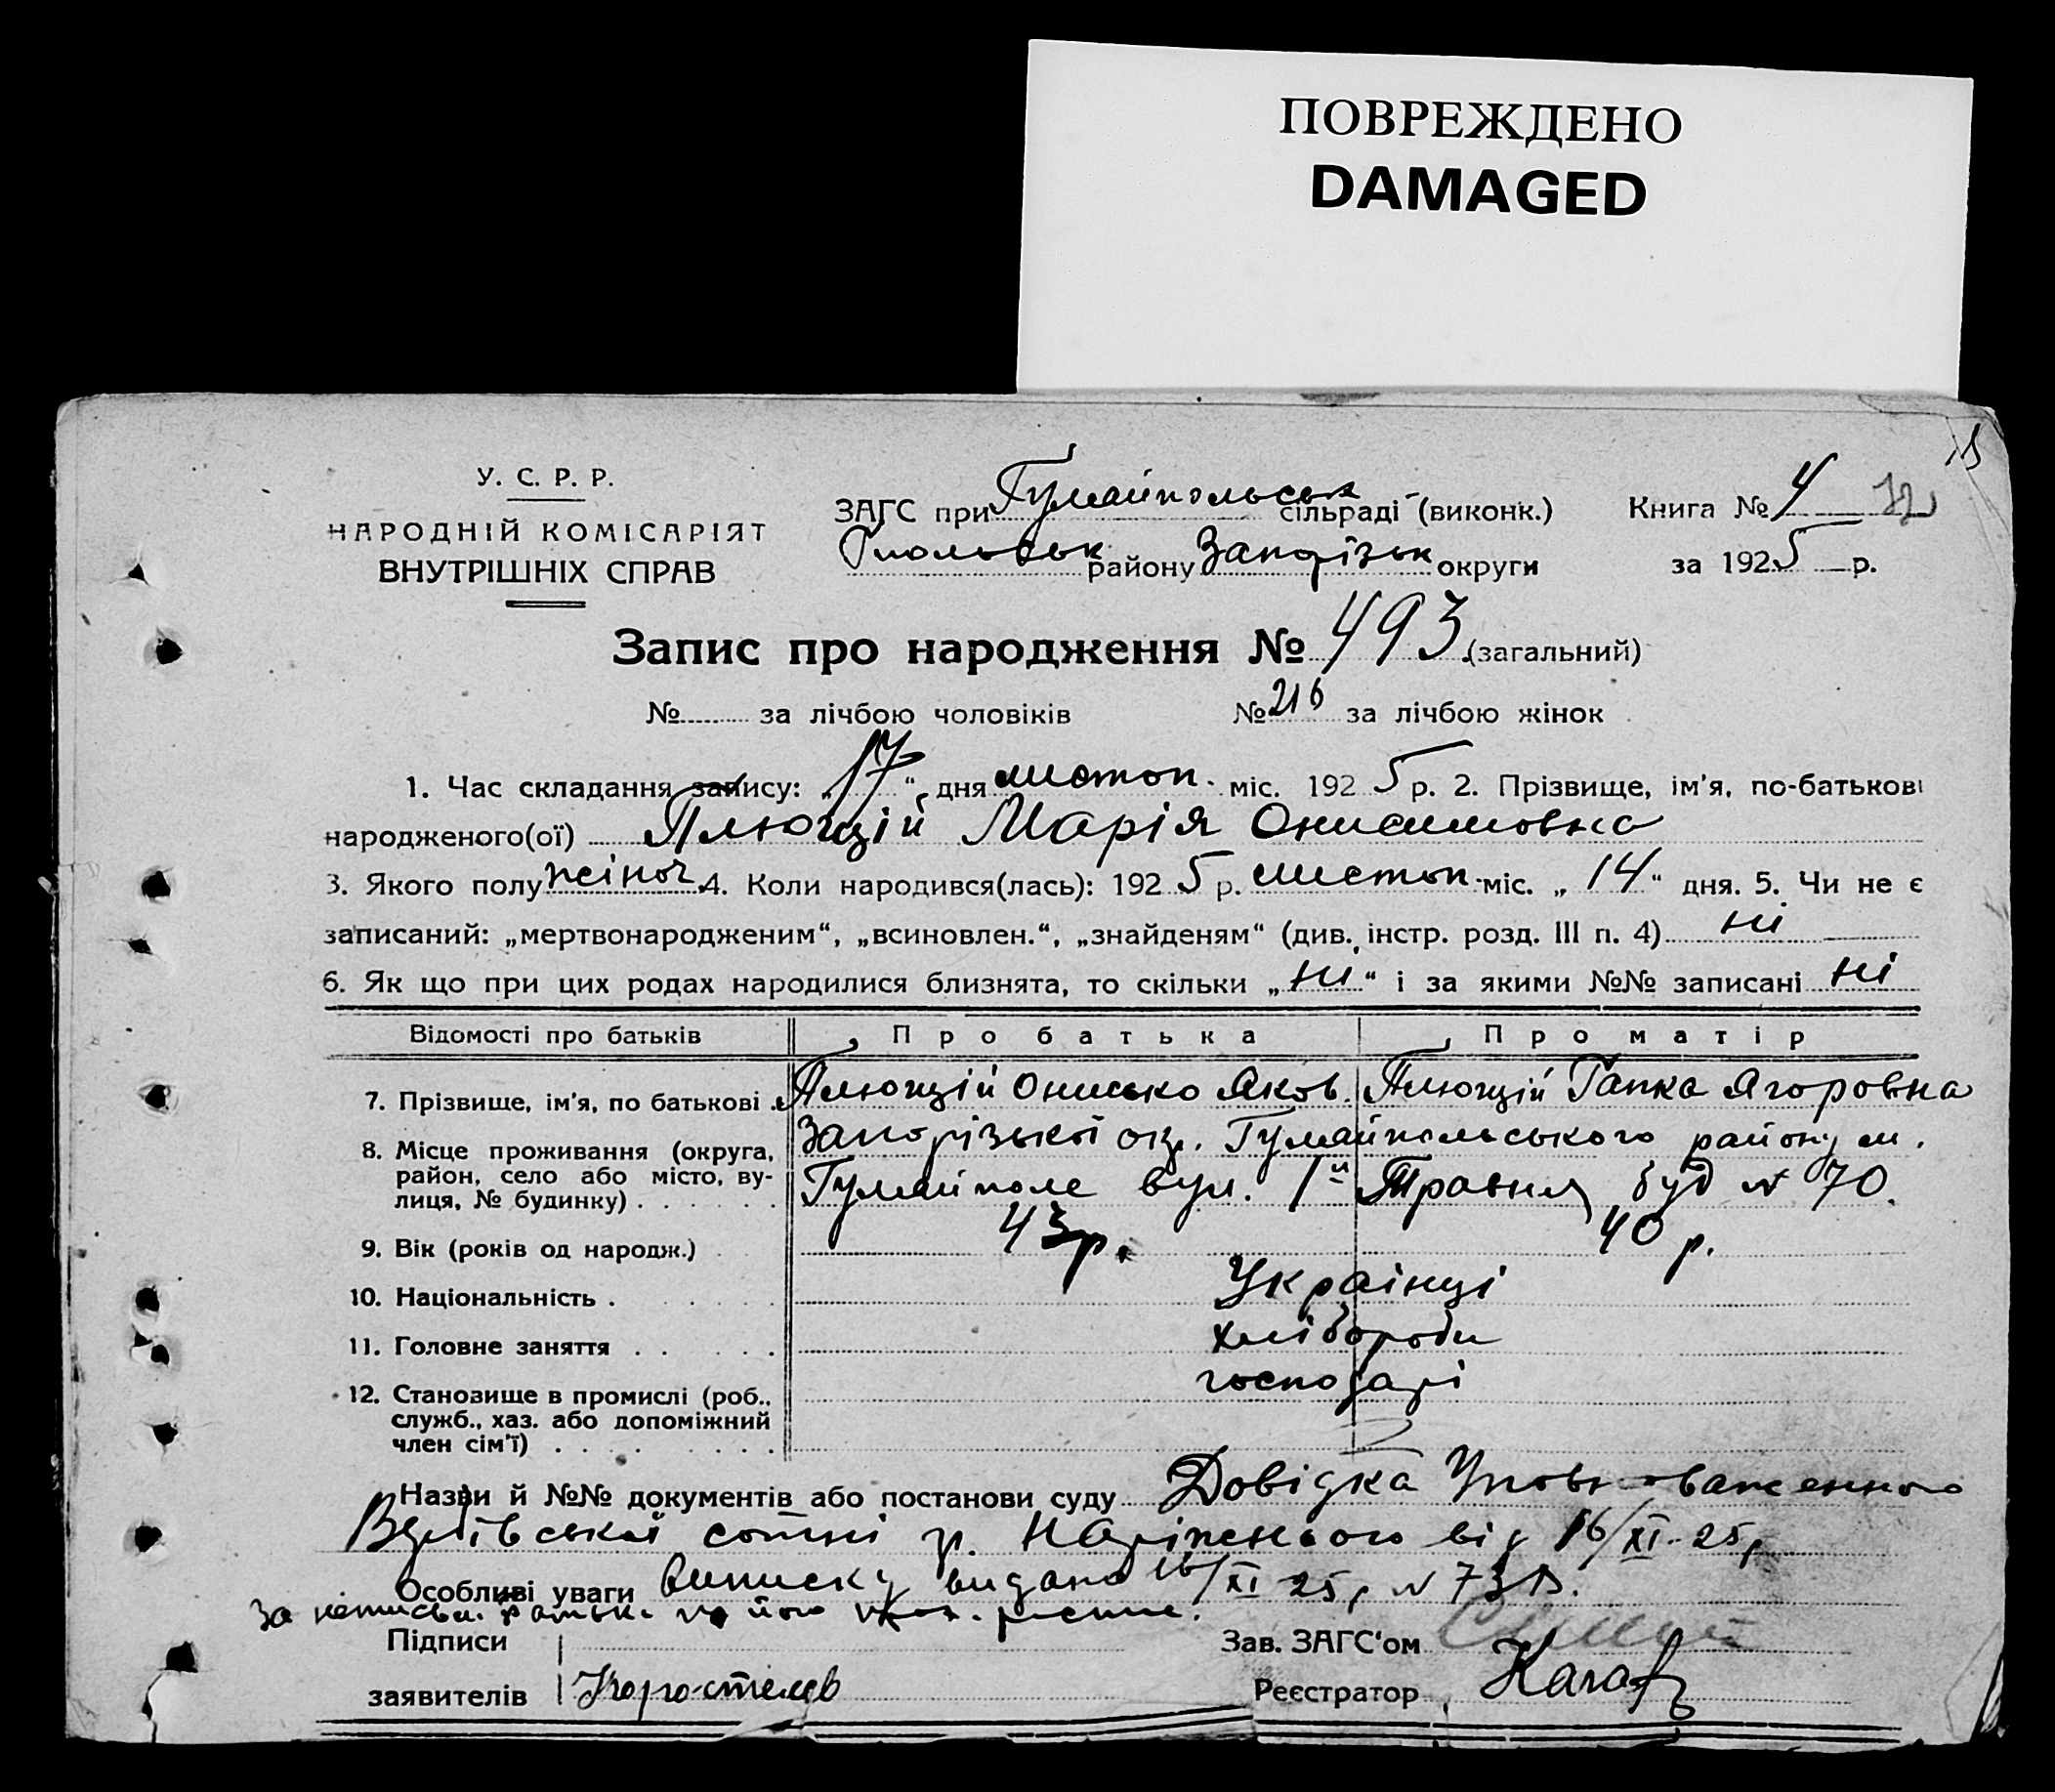 ПОВРЕЖДЕНО
DAMAGED
У. С. Р. Р.
НАРОДНІЙ КОМІСАРІЯТ
ВНУТРІШНІХ СПРАВ
ЗАГС при Гуляйпольськ сільраді (виконк.)
району Запорізьк округи
Книга № 4
за 1925 р.
Запис про народження № 493 (загальний)
№ за лічбою чоловіків № 216 за лічбою жінок
1. Час складання запису: „17“ дня листоп. міс. 1925 р. 2. Прізвище, ім'я, по-батькові
народженого(ої) Плющій Марія Онисимовна
3. Якого полу жіноч. 4. Коли народився(лась): 1925 р. листоп. міс. „14“ дня. 5. Чи не є
записаний: „мертвонародженим“, „всиновлен.“, „знайденям“ (див. інстр. розд. III п. 4) ні
6. Як що при цих родах народилися близнята, то скільки „ні“ і за якими №№ записані ні
Відомості про батьків Про батька Про матір
7. Прізвище, ім'я, по батькові Плющій Онисько Яков. Плющій Гапка Ягоровна
8. Місце проживання (округа, район, село або місто, вулиця, № будинку)
Запорізької окр. Гуляйпольського району м.
Гуляйполе вул. 1й Травня буд № 70.
9. Вік (років од народж.) 43 р. 40 р.
10. Національність Українці
11. Головне заняття хлібороби
12. Становище в промислі (роб., служб., хаз. або допоміжний член сім'ї) господарі
Назви й №№ документів або постанови суду Довідка Уповноваженного
сотні гр. Наріжнього від 16/XI-25р
Особливі уваги виписку видано 16/XI 25р №
Підписи
заявителів Коростелев
Зав. ЗАГС'ом
Реєстратор